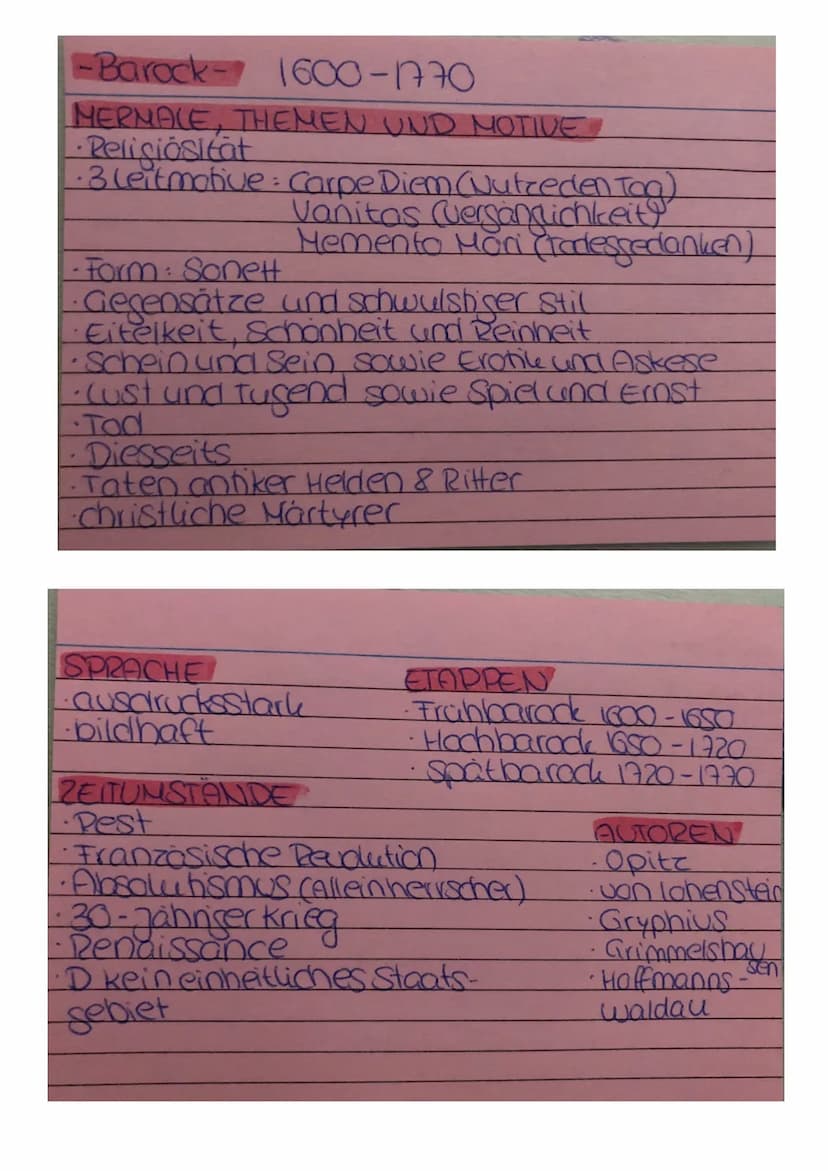 -Barock- 1600-1770
MERMALE, THEMEN UND MOTIVE
· Religiösität
· 3 Leitmotive: Carpe Diem (Nutze den Tag)
Vanitas (Vergänglichkeit)
Memento Mori (Todesgedanken)
· Form: Sonett
· Gegensätze und schwulstiger Stil
· Eitelkeit, Schönheit und Reinheit
· Schein und Sein sowie Erotik und Askese
· Lust und Tugend sowie Spiel und Ernst
· Tod
· Diesseits
· Taten antiker Helden & Ritter
· christliche Märtyrer
SPRACHE
· ausdrucksstark
· bildhaft
ETAPPEN
· Frühbarock 1600-1650
· Hochbarock 1650-1720
· Spätbarock 1720-1770
ZEITUMSTÄNDE
· Pest
· Französische Revolution
· Absolutismus (Alleinherrscher)
· 30-Jähriger Krieg
· Renaissance
· D kein einheitliches Staats-
gebiet
AUTOREN
· Opitz
· von Lohenstein
· Gryphius
· Grimmelshau
sen
· Hoffmanns-
waldau